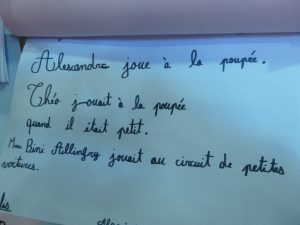 Alescandra joue à la poupée.
Théo jouait à la poupée
quand il était petit.
Beni jouait au circuit de petites
voitures.